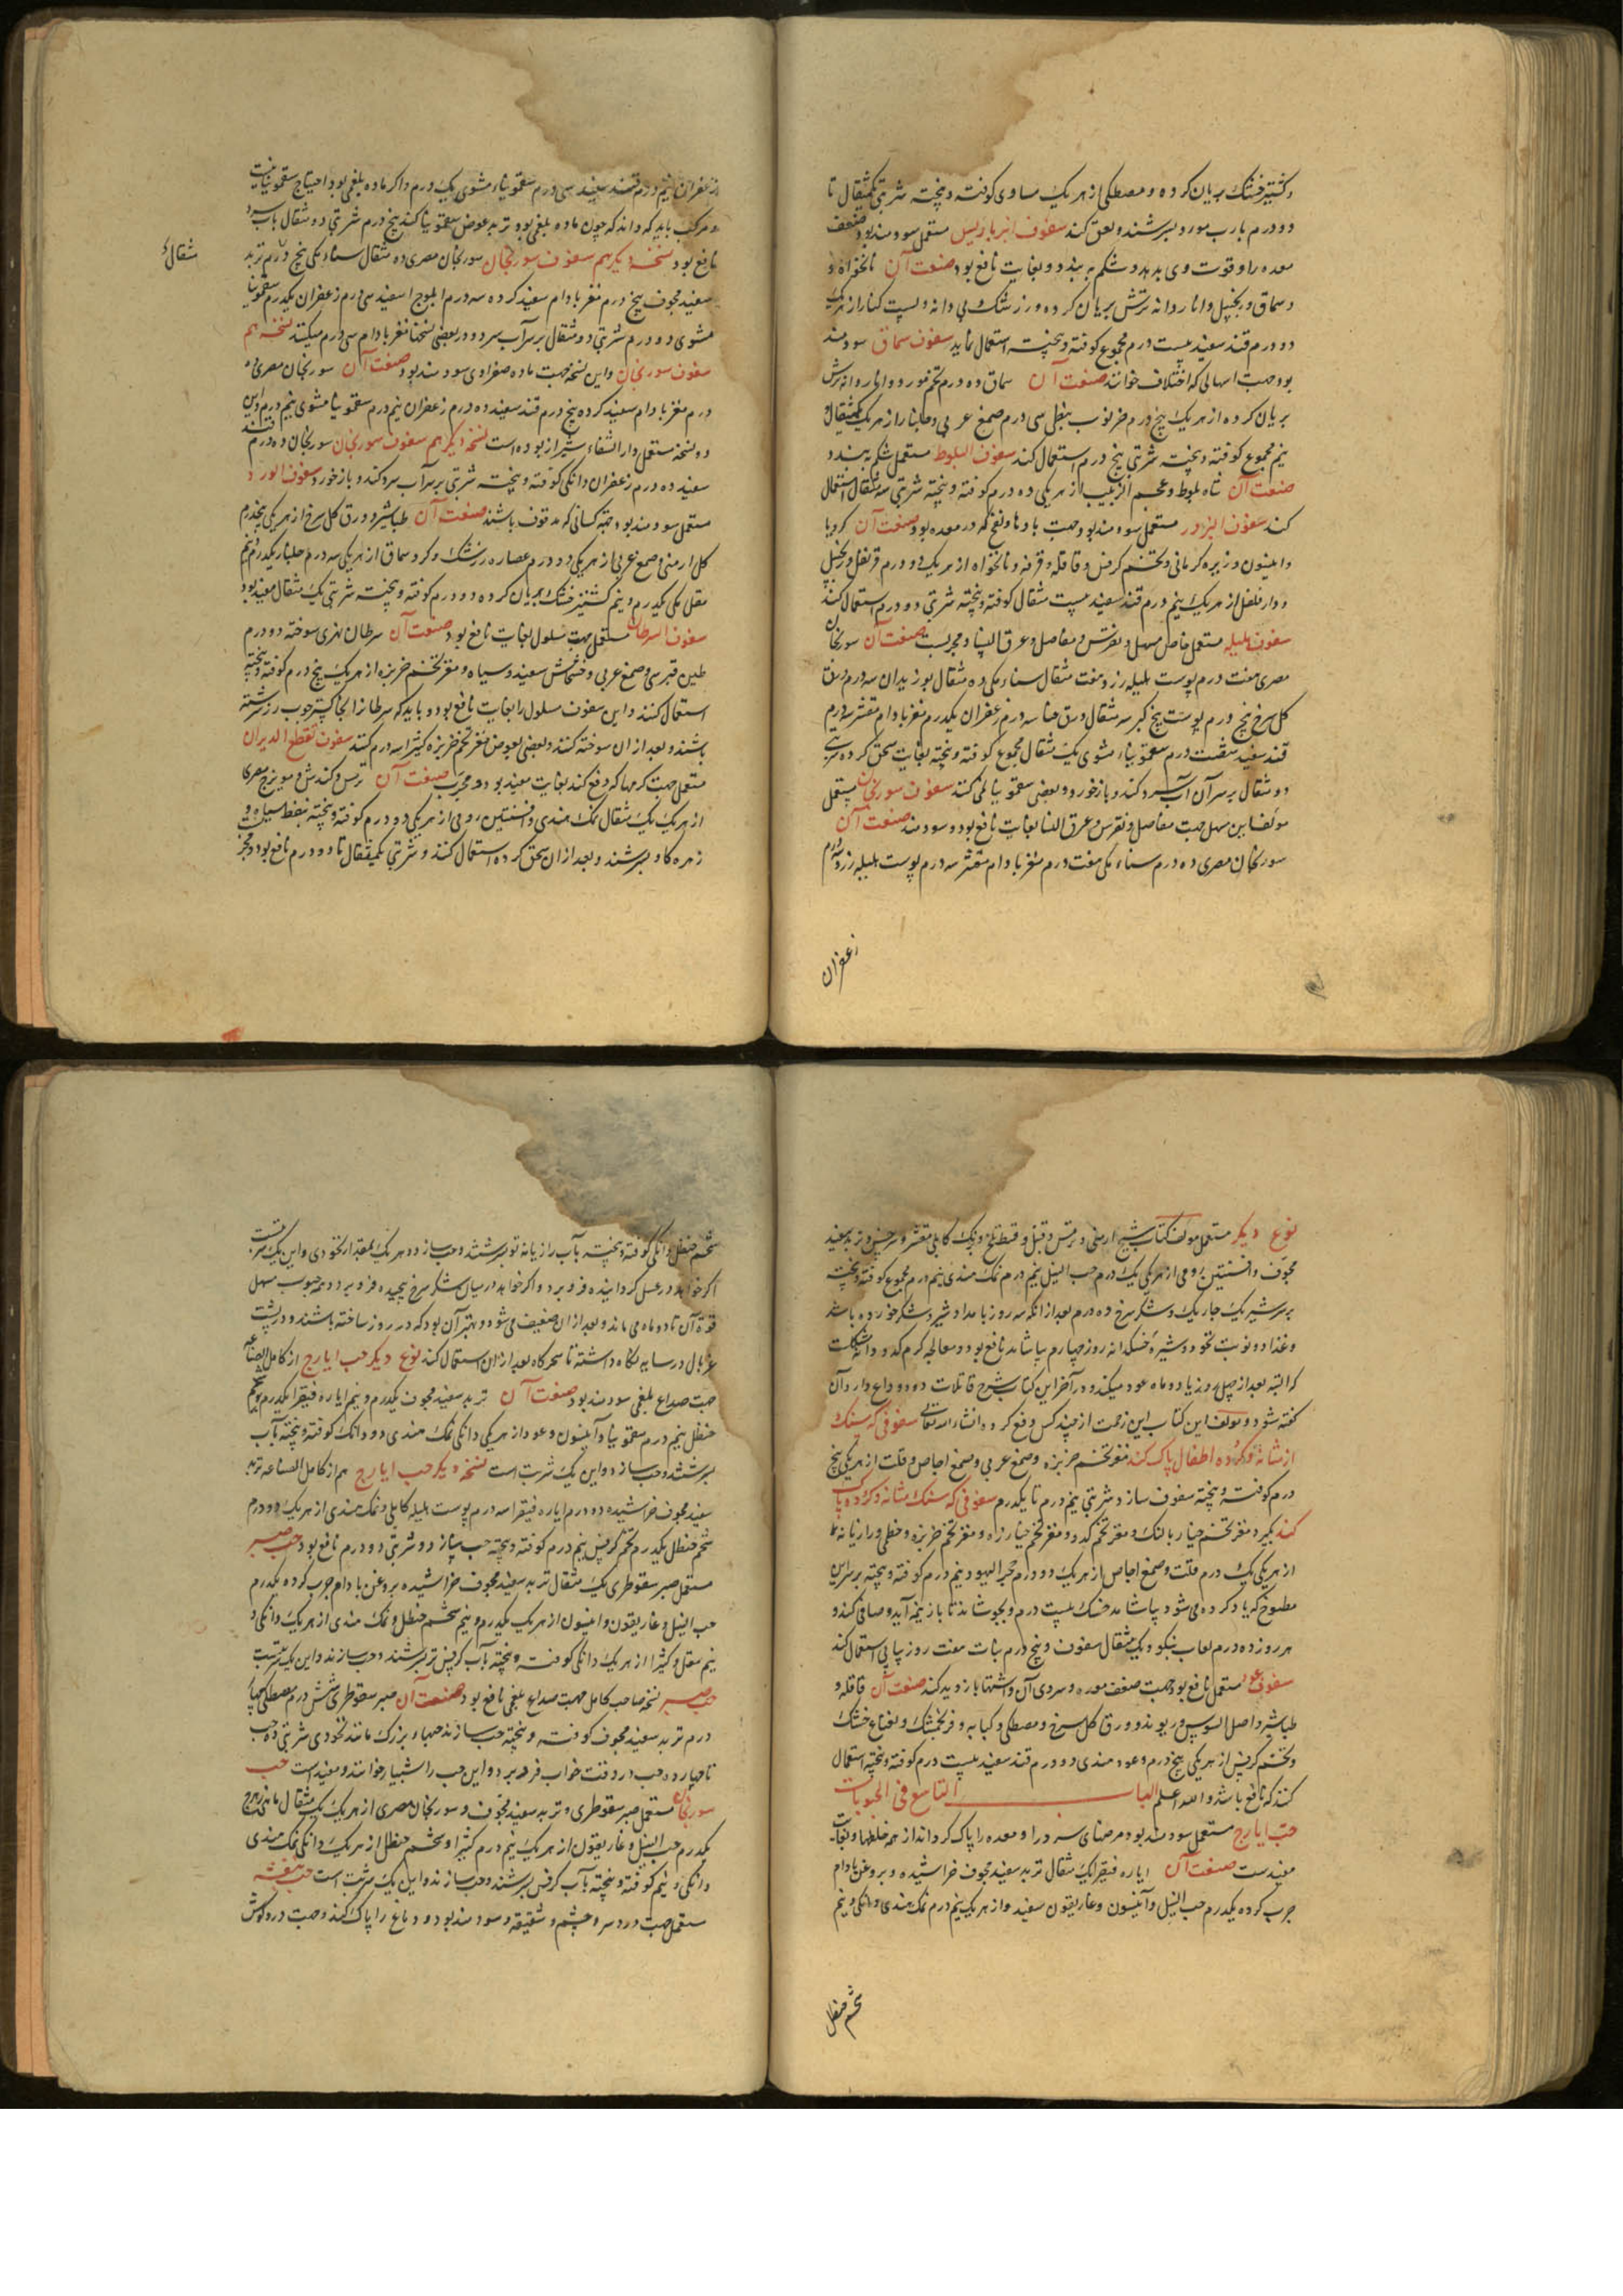 وکشنیز خشک بریان کرده و مصطکی از هر یک مساوی کوفته و پخته شربتی یکمثقال تا
دو درم بارب مورد بسرشند و لعق کند سفوف انبرباریس مستعمل سودمند بود ضعف
معده را و قوت وی بدهد و شکم به بندد و بغایت نافع بود صنعت آن نانخواه
و سماق و زنجبیل و انار دانه ترش بریان کرده و زرشک بی دانه و پست کنار از هر یک
دو درم قند سفید بیست درم مجموع کوفته و پخته استعمال نماید سفوف سماق سودمند
بود جهت اسهالی که اختلاف خوانند صنعت آن سماق ده درم تخم مورد و انار دانه ترش
بریان کرده از هر یک پنج درم خرنوب نبطی سی درم صمغ عربی و جلنار از هر یک یکمثقال
نیم مجموع کوفته و پخته شربتی پنج درم استعمال کند سفوف البلوط مستعمل شکم ببندد
صنعت آن شاه بلوط و عجم الزبیب از هر یکی ده درم کوفته و پخته شربتی سه مثقال استعمال
کند سفوف البزور مستعمل سودمند بود جهت بادها و نفخ که در معده بود صنعت آن کرویا
و انیسون و زیره کرمانی و تخم کرفس و قاقله و قرفه و نانخواه از هر یک دو درم قرنفل و زنجبیل
و دار فلفل از هر یک نیم درم قند سفید بیست مثقال کوفته و پخته شربتی دو درم استعمال کند
سفوف هلیله مستعمل خاص مسهل و نقرس و مفاصل و عرق النسا و مجربست صنعت آن سورنجان
مصری هفت درم پوست هلیله زرد هفت مثقال سناء مکی ده مثقال بوزیدان سه درم ورق
کل سرخ پنج درم پوست بیخ کبر سه مثقال ورق حنا سه درم زعفران یکدرم مغز بادام مقشر سه درم
قند سفید شصت درم سقمونیاء مشوی یک مثقال مجموع کوفته و پخته بغایت سحق کرده شربتی
دو مثقال بر سر آن آب سرد کند و باز خورد و بعضی سقمونیا نمی کنند سفوف سورنجان مستعمل
مولف این مسهل جهت مفاصل و نقرس و عرق النسا بغایت نافع بود و سودمند صنعت آن
سورنجان مصری ده درم سناء مکی هفت درم مغز بادام مقشر سه درم پوست هلیله زرد
زعفران
زعفران نیم درم قند سفید سی درم سقمونیاء مشوی یک درم و اکر ماده بلغمی بود احتیاج سقمونیا نیست
و مرکب باید که داند که چون ماده بلغمی بود تربد عوض سقمونیا کند پنج درم شربتی دو مثقال بآب سرد
نافع بود نسخه دیکر هم سفوف سورنجان سورنجان مصری ده مثقال سناء مکی پنج درم تربد
مثقال
سفید مجوف پنج درم مغز بادام سفید کرده سه درم ابلوج اسفید سی درم زعفران یکدرم سقمونیا
مشوی دو درم شربتی دو مثقال بر سر آب سرد و در بعضی نسخها مغز بادام سی درم میکنند نسخه هم
سفوف سورنجان و این نسخه جهت ماده صفراوی سودمند بود صنعت آن سورنجان مصری ده
درم مغز بادام سفید کرده پنج درم قند سفید ده درم زعفران نیم درم سقمونیا مشوی نیم درم و این
دو نسخه مستعمل دار الشفاء شیراز بوده است نسخه دیکر هم سفوف سورنجان سورنجان ده درم قند
سفید ده درم زعفران دانکی کوفته و پخته شربتی بر سر آب سرد کند و باز خورد سفوف الورد
مستعمل سودمند بود جهة کسانی که مدقوق باشند صنعت آن طباشیر و ورق کل سرخ از هر یکی پنجدرم
کل ارمنی و صمغ عربی از هر یکی دو درم عصاره زرشک و کرد سماق از هر یکی سه درم جلنار یکدرم و نیم
مقل مکی یکدرم و نیم کشنیز خشک بریان کرده دو درم کوفته و پخته شربتی یک مثقال مفید بود
سفوف السرطان مستعمل جهت سلول بغایت نافع بود صنعت آن سرطان نهری سوخته دو درم
طین قبرسی و صمغ عربی و خشخاش سفید و سیاه و مغز تخم خربزه از هر یک پنج درم کوفته و پخته
استعمال کنند و این سفوف مسلول را بغایت نافع بود و باید که سرطان را خاکستر چوب رز سرشته
باشند و بعد از ان سوخته کنند و بعضی بعوض مغز تخم خربزه کتیرا سه درم کنند سفوف لقطع الدیدان
مستعمل جهت کرمها که دفع کند بغایت مفید بود و مجرب صنعت آن ترمس و کندش و مویزج مصری
از هر یک یک مثقال نمک هندی و افسنتین رومی از هر یکی دو درم کوفته و پخته بنفط سیاه و
زهره کاو بسرشند و بعد از ان سحق کرده استعمال کنند و شربتی یکمثقال تا دو درم نافع بود و مجرب
نوع دیکر مستعمل مولف کتاب شیح ارمنی و ترمس و قنبیل و قسط تلخ و برنک کابلی مقشر و سرخس و تربد سفید
مجوف و افسنتین رومی از هر یکی یک درم حب النیل نیم درم نمک هندی نیم درم مجموع کوفته و پخته
بر سر شیر یک چاریک و شکر سرخ ده درم بعد از انکه سه روز بامداد شیر و شکر خورده باشد
و غذا دو نوبت نخود و شیره خسکدانه روز چهارم بیاشامد نافع بود و معالجه کرم کدو دانه مشکلست
که البته بعد از چهل روز یا دو ماه عود میکند و در آخر این کتاب شرح قاتلات دود و داع دار و آن
کفته شود و مولف این کتاب این زحمت از چند کس دفع کرد و انشاء الله تعالی سفوفی که سنک
از مثانه و کرده اطفال پاک کند مغز تخم خربزه و صمغ عربی و صمغ اجاص و قلت از هر یکی پنج
درم کوفته و پخته سفوف سازد شربتی نیم درم تا یکدرم سفوفی که سنک مثانه و کرده پاک
کند بکیرد مغز تخم خیار بالنک و مغز تخم کدو و مغز تخم خیارزه و مغز تخم خربزه و خطمی و رازیانه
از هر یکی یک درم قلت و صمغ اجاص از هر یک دو درم حجر الیهود نیم درم کوفته و پخته بر سر این
مطبوخ که یاد کرده می شود بیاشامد خسک بیست درم و بجوشاند تا باز نیمه آید و صافی کند و
هر روز ده درم لعاب نیکو و یک مثقال سفوف و پنج درم نبات هفت روز پیاپی استعمال کند
سفوف عود مستعمل نافع بود جهت ضعف معده و سردی آن و اشتها باز دید کند صنعت آن قاقله و
طباشیر و اصل السوس و ریوند و ورق کل سرخ و مصطکی و کبابه و فرنجمشک و نعناع خشک
و تخم کرفس از هر یکی پنج درم و عود هندی دو درم قند سفید بیست درم کوفته و پخته استعمال
کنند که نافع باشد والله اعلم الباب التاسع فی الحبوبات
حب ایارج مستعمل سودمند بود مرضهای سر را و معده را پاک کرداند از همه خلطها و بغایت
مفیدست صنعت آن ایاره فیقرا یک مثقال تربد سفید مجوف خراشیده و بروغن بادام
چرب کرده یکدرم حب النیل و آنیسون و غاریقون سفید از هر یک نیم درم نمک هندی دانکی و نیم
شحم حنظل
شحم حنظل دانکی کوفته و پخته بآب رازیانه تر بسرشند و حب سازد هر یک بمقدار نخودی و این یک شربتست
اکر خواهد در عسل کردانیده فرو برد و اکر خواهد در میان شکر سرخ پیچیده فرو برد و همه حبوب مسهل
قوة آن تا دو ماه می ماند و بعد از ان ضعیف می شود و بهتر آن بود که در روز ساخته باشند و در پشت
غربال در سایه نکاه داشته تا سحرکاه بعد از ان استعمال کند نوع دیکر حب ایارج از کامل الصناعه
جهت صداع بلغمی سودمند بود صنعت آن تربد سفید مجوف یکدرم و نیم ایاره فیقرا یکدرم شحم
حنظل نیم درم سقمونیا و آنیسون و عود از هر یکی دانکی نمک هندی دو دانک کوفته و پخته بآب
بسرشند و حب سازد و این یک شربت است نسخه دیکر حب ایارج هم از کامل الصناعه تربد
سفید مجوف خراشیده دو درم ایاره فیقرا سه درم پوست هلیله کابلی و نمک هندی از هر یک دو درم
شحم حنظل یکدرم تخم کرفس نیم درم کوفته و پخته حب سازد و شربتی دو درم نافع بود حب صبر
مستعمل صبر سقوطری یک مثقال تربد سفید مجوف خراشیده بروغن بادام چرب کرده یکدرم
حب النیل و غاریقون و انیسون از هر یک یکدرم و نیم شحم حنظل و نمک هندی از هر یک دانکی و
نیم مقل و کتیرا از هر یک دانکی کوفته و پخته بآب کرفس تر بسرشند و حب سازند و این یک شربتست
حب صبر نسخه صاحب کامل جهت صداع بلغمی نافع بود صنعت آن صبر سقوطری شش درم مصطکی چهار
درم تربد سفید مجوف کوفته و پخته حب سازند حبهاء بزرک مانند نخودی شربتی ده حب
تا چهارده حب در وقت خواب فرو برد و این حب را شبیار خوانند و مفیداست حب
سورنجان مستعمل صبر سقوطری و تربد سفید مجوف و سورنجان مصری از هر یک یک مثقال ماهی زهرج
یکدرم حب النیل و غاریقون از هر یک نیم درم کتیرا و شحم حنظل از هر یک دانکی نمک هندی
دانکی و نیم کوفته و پخته بآب کرفس بسرشند و حب سازند و این یک شربت است حب بنفشه
مستعمل جهت درد سر و چشم و شقیقه و سودمند بود و دماغ را پاک کند و جهت درد کوش